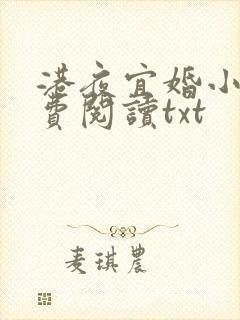 港夜宜婚小
費閱讀txt
麦琪農